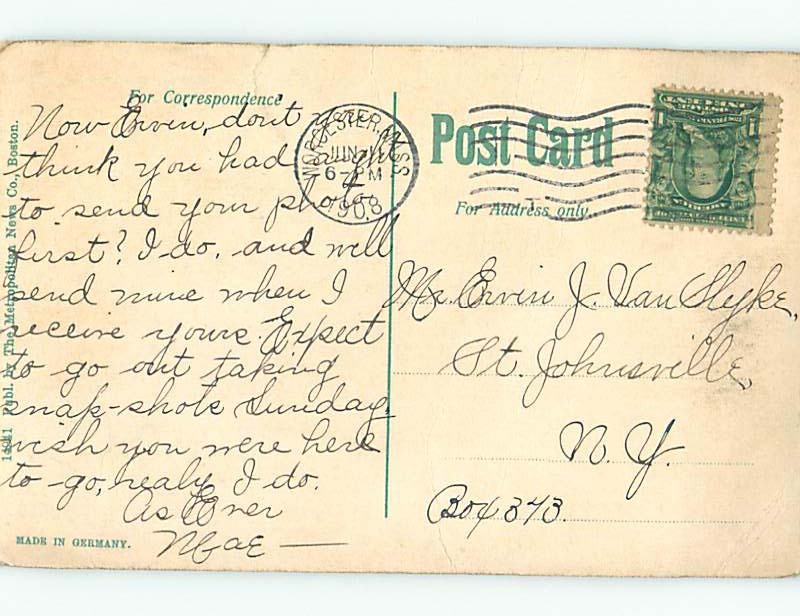 For Correspondence
Now Ervin, dont you
think you had aught
to send your photo
first? I do, and will
send mine when I
receive yours. Expect
to go out taking
snap-shots Sunday,
wish you were here
to go, realy I do.
As Ever
Mae
14941 Publ. by The Metropolitan News Co., Boston.
MADE IN GERMANY.
WORCESTER, MASS.
JUN
6-PM
1908
Post Card
For Address only.
Mr. Ervin J. Van Slyke,
St. Johnsville,
N. Y.
Box 373.